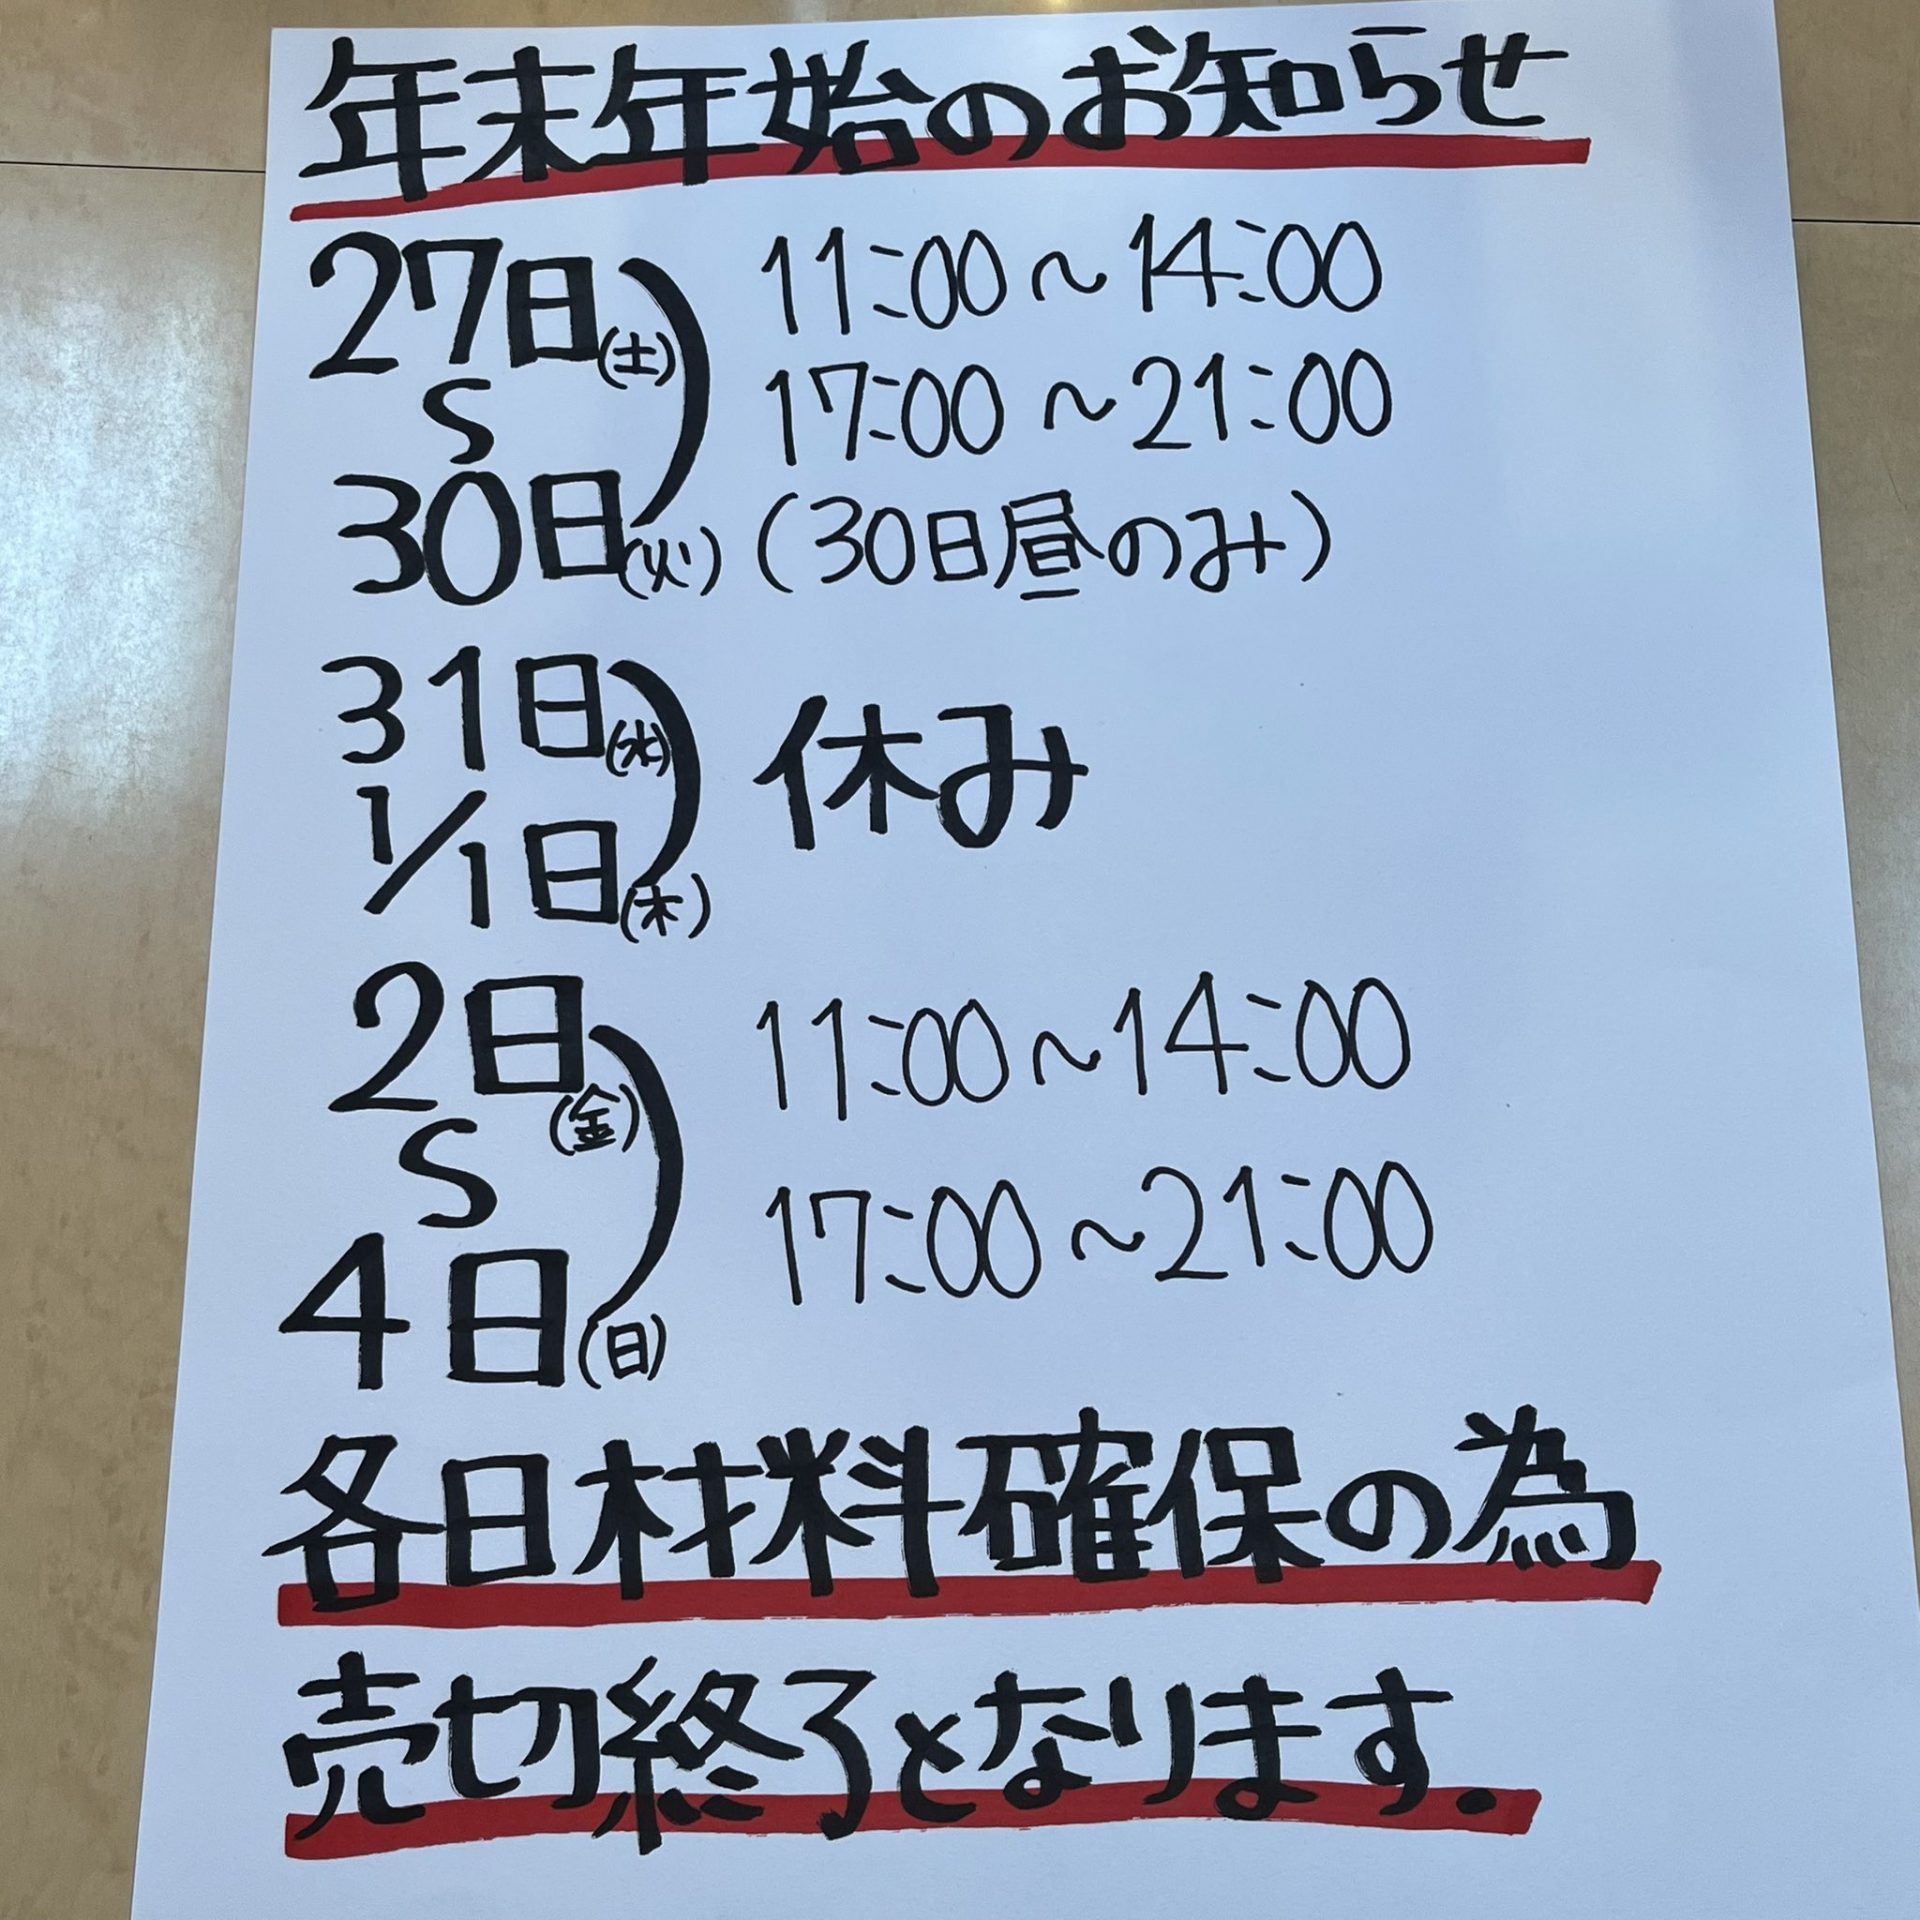 年末年始のお知らせ
27日(土) 11:00~14:00
S 17:00~21:00
30日(火) (30日昼のみ)
31日(水) 休み
1/1日(木)
2日(金) 11:00~14:00
S 17:00~21:00
4日(日)
各日材料確保の為
売切終了となります.